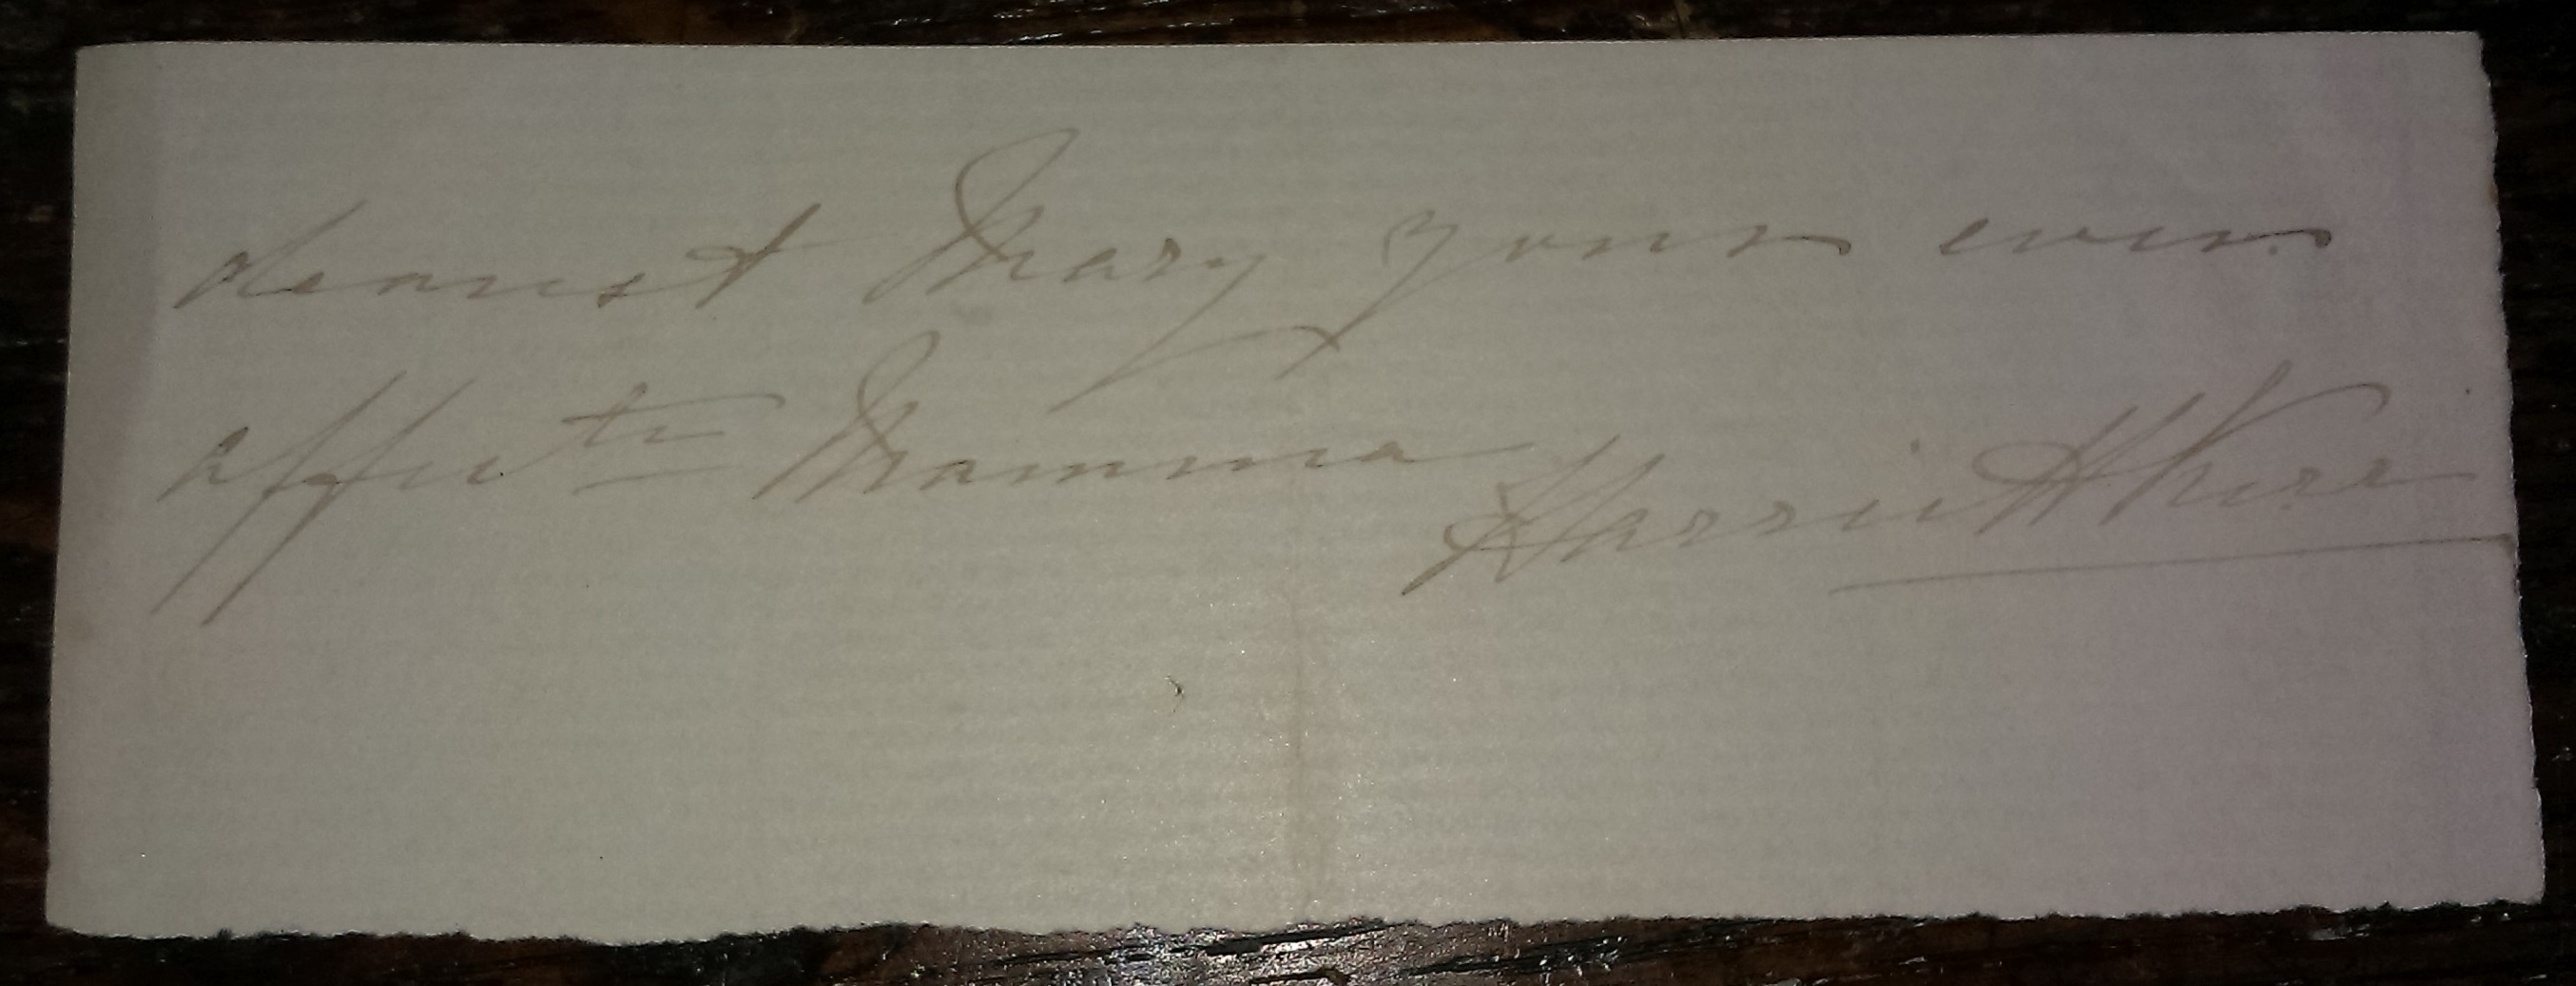 dearest Mary your ever
affecte Mamma
Harriet Kerr